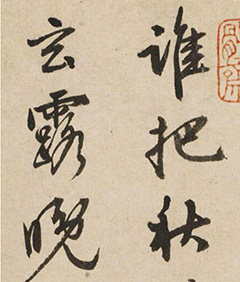 誰把秋
玄露晚